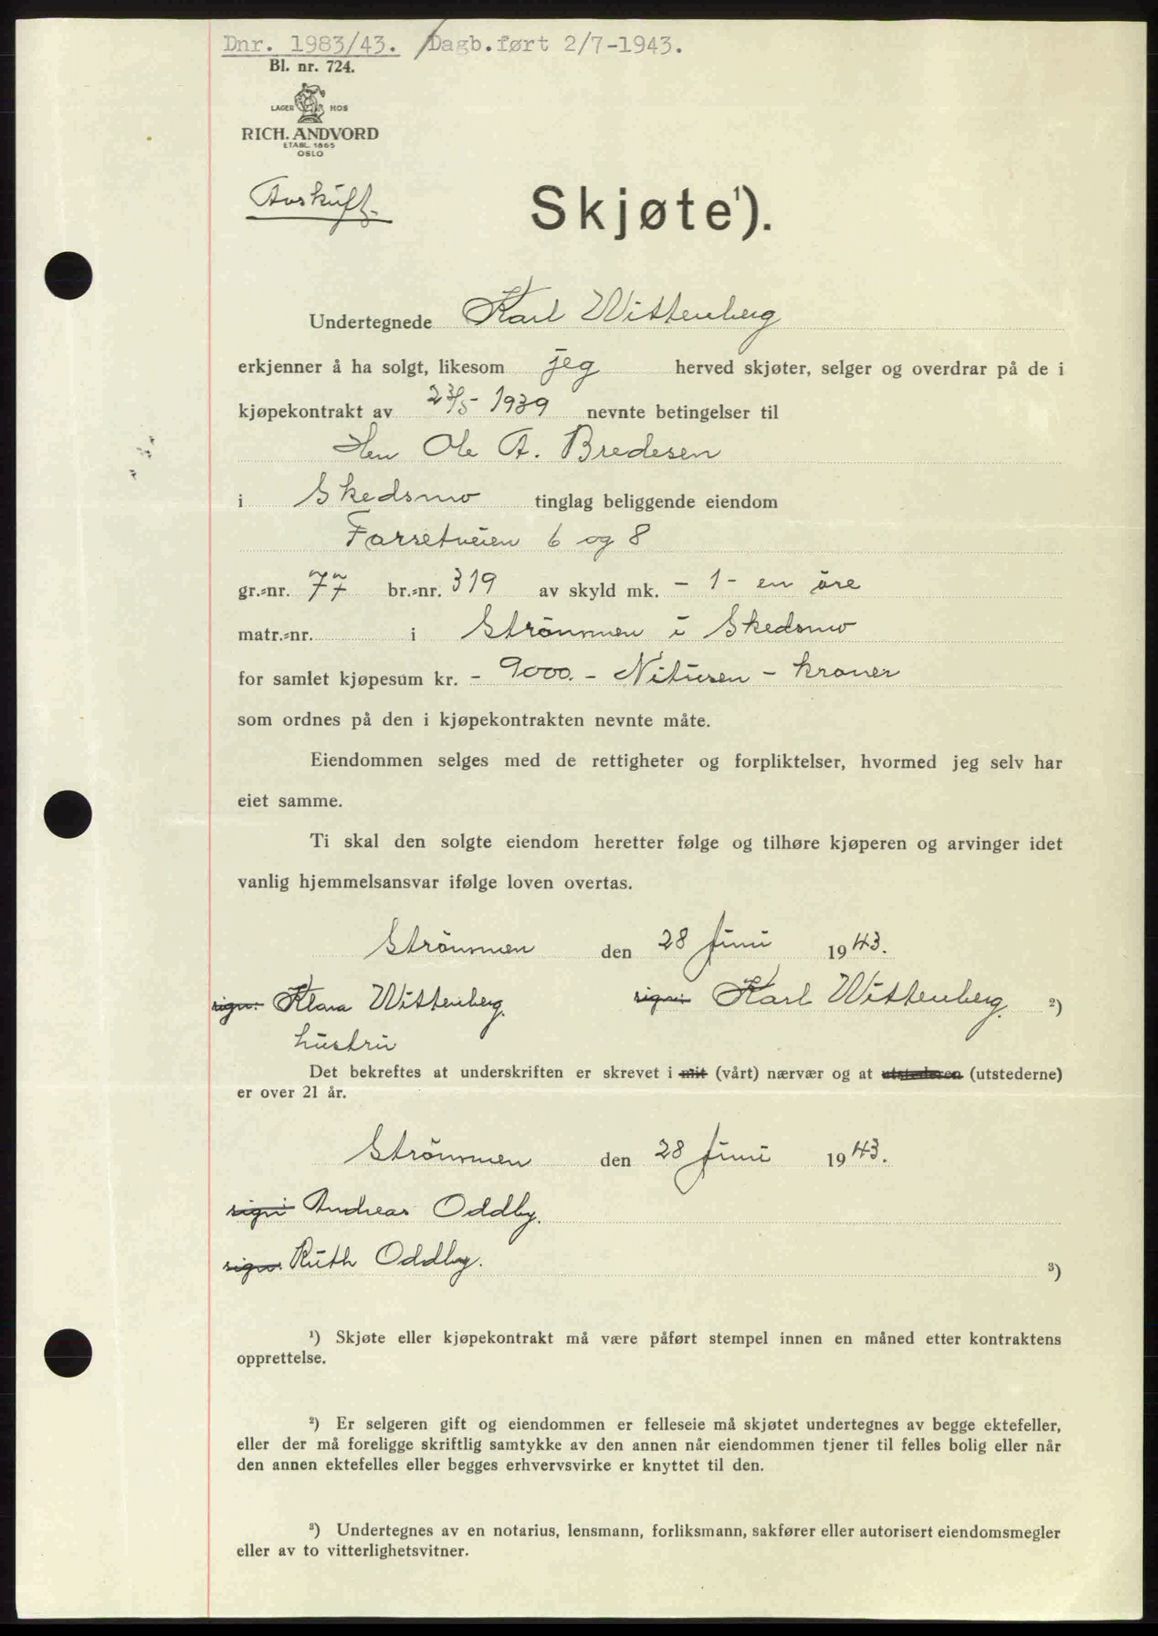 Dnr. 1983/43. /Dagb.ført 2/7-1943.
Bl. nr. 724.
LAGER HOS
RICH. ANDVORD
ETABL. 1865
OSLO
Avskrift.
Skjøte¹).
Undertegnede Karl Wittenberg
erkjenner å ha solgt, likesom jeg herved skjøter, selger og overdrar på de i
kjøpekontrakt av 23/5-1939 nevnte betingelser til
Herr Ole A. Bredesen
i Skedsmo tinglag beliggende eiendom
Farsetveien 6 og 8
gr.-nr. 77 br.-nr. 319 av skyld mk. - 1 - en øre
matr.-nr. i Strømmen i Skedsmo
for samlet kjøpesum kr. - 9000.- Nitusen - kroner
som ordnes på den i kjøpekontrakten nevnte måte.
Eiendommen selges med de rettigheter og forpliktelser, hvormed jeg selv har
eiet samme.
Ti skal den solgte eiendom heretter følge og tilhøre kjøperen og arvinger idet
vanlig hjemmelsansvar ifølge loven overtas.
Strømmen den 28 Juni 1943.
sign. Klara Wittenberg. sign. Karl Wittenberg. ²)
hustru
Det bekreftes at underskriften er skrevet i mit (vårt) nærvær og at utstederen (utstederne)
er over 21 år.
Strømmen den 28 Juni 1943.
sign. Andreas Oddby.
sign. Ruth Oddby. ³)
¹) Skjøte eller kjøpekontrakt må være påført stempel innen en måned etter kontraktens
opprettelse.
²) Er selgeren gift og eiendommen er felleseie må skjøtet undertegnes av begge ektefeller,
eller der må foreligge skriftlig samtykke av den annen når eiendommen tjener til felles bolig eller når
den annen ektefelles eller begges erhvervsvirke er knyttet til den.
³) Undertegnes av en notarius, lensmann, forliksmann, sakfører eller autorisert eiendomsmegler
eller av to vitterlighetsvitner.